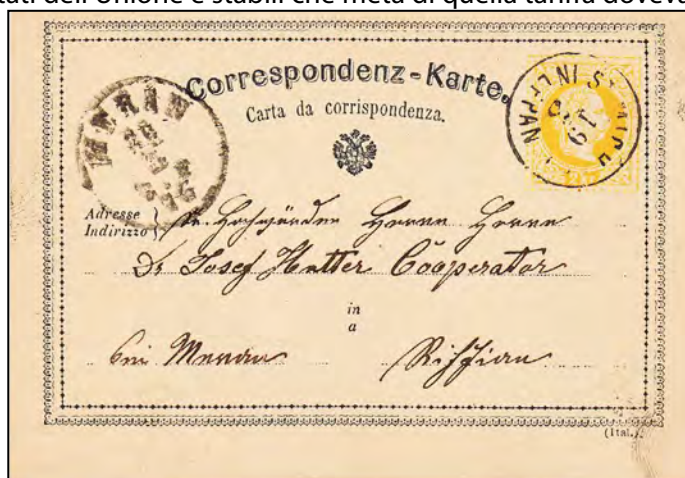 tati dell'Unione e stabilì che metà di quella tariffa doveva
Correspondenz-Karte.
Carta da corrispondenza.
MERAN
IN EPPAN
19
Adresse
Indirizzo
Sr. Hochwürden Herrn Herrn
Dr Josef Hutter Cooperator
in
a
bei Meran Riffian
(Ital.)